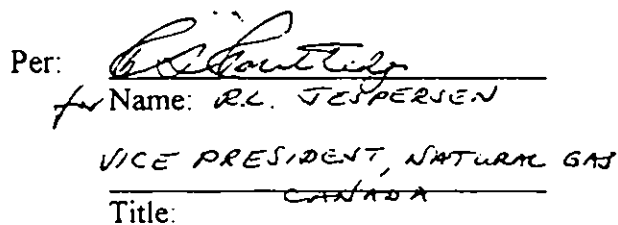 Per:
for Name: R.L. JESPERSEN
VICE PRESIDENT, NATURAL GAS
CANADA
Title: